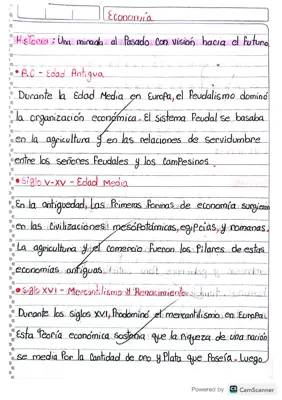 Economía
Historia: Una mirada al Pasado con visión hacia el futuro
• A.C - Edad Antigua
Durante la Edad Media en Europa, el Feudalismo dominó
la organización económica. El sistema Feudal se basaba
en la agricultura y en las relaciones de servidumbre
entre los señores Feudales y los campesinos.
• Siglo V-XV - Edad Media
En la antigüedad, las Primeras Formas de economía surgieron
en las civilizaciones mesopotámicas, egipcias, y romanas.
La agricultura y el comercio Fueron los Pilares de estas
economías antiguas
• Siglo XVI - Mercantilismo y Renacimiento
Durante los siglos XVI, Predominó el mercantilismo en Europa.
Esta Teoría económica sostenía que la riqueza de una nación
se media Por la cantidad de oro y Plata que Poseía. Luego
Powered by CS CamScanner